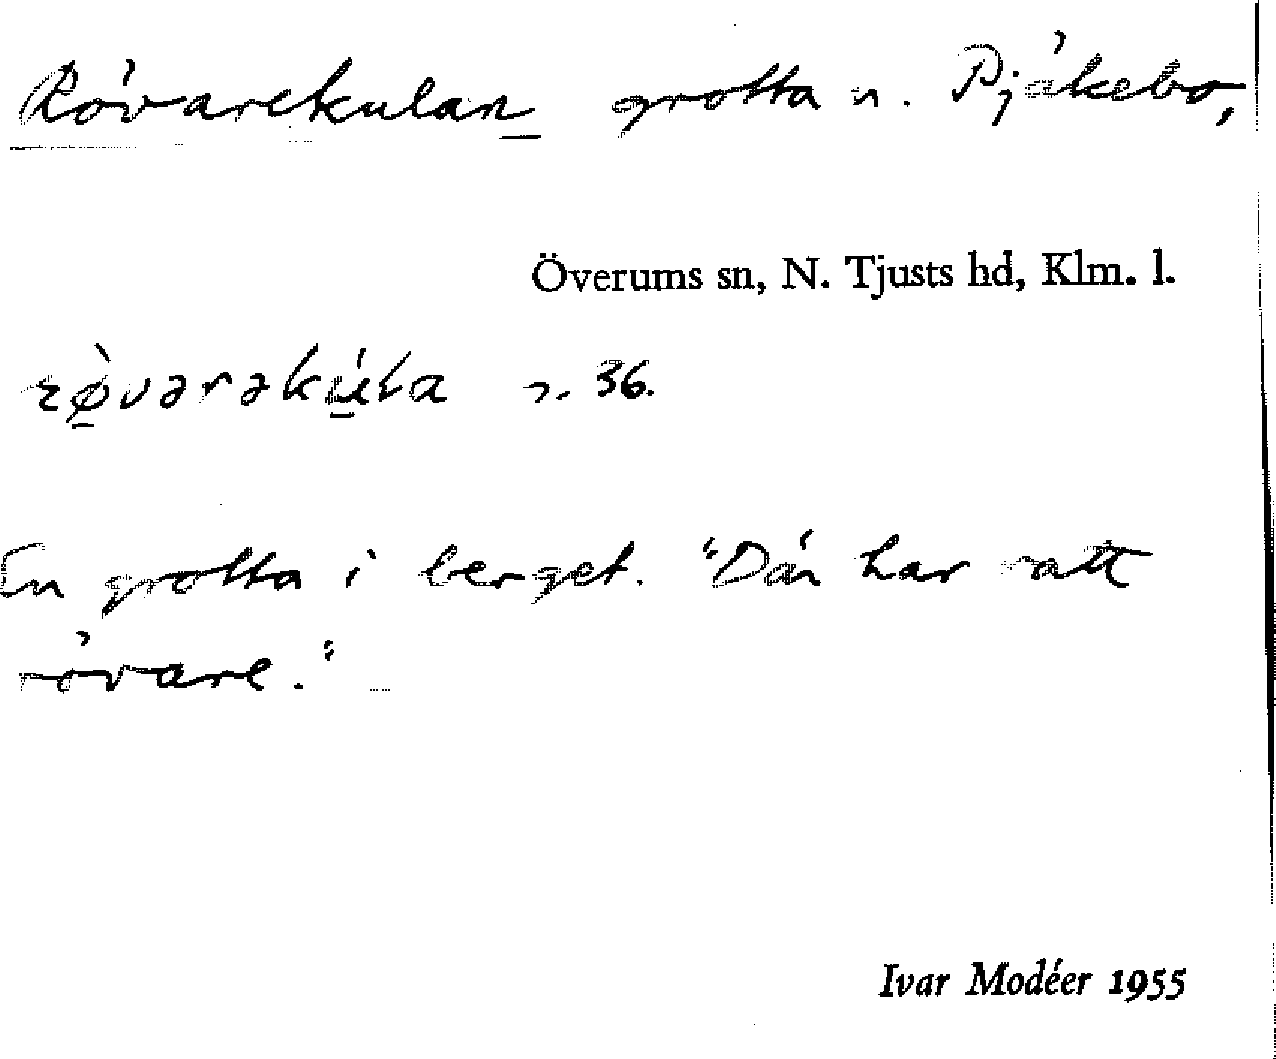 Rövarekulan grotta n. Pjäkebo,
Överums sn, N. Tjusts hd, Klm. l.
36.
En grotta i berget. "Där har vatt
rövare."
Ivar Modéer 1955